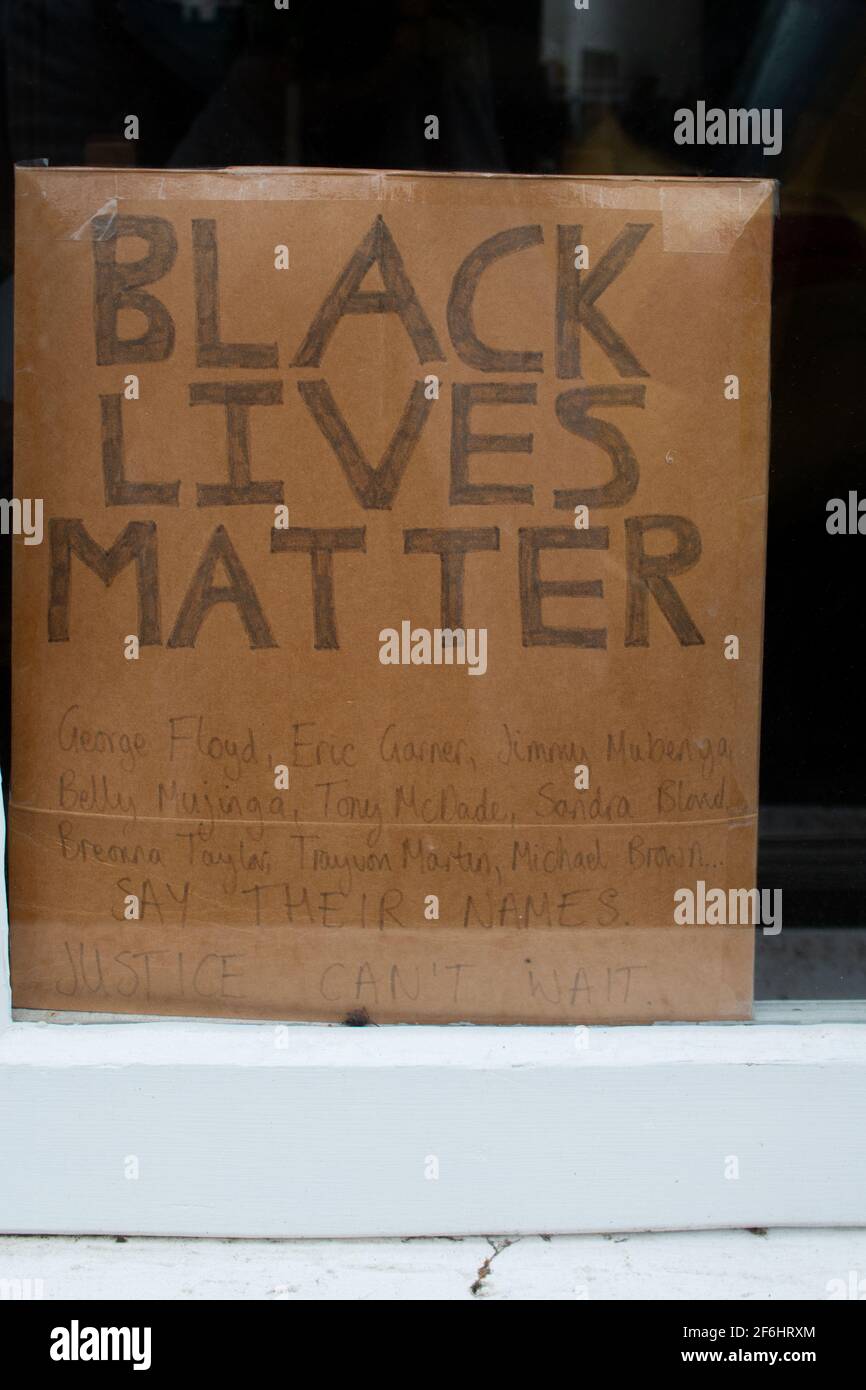 BLACK
LIVES
MATTER
George Floyd, Eric Garner, Jimmy Mubenga,
Belly Mujinga, Tony McDade, Sandra Bland,
Breonna Taylor, Trayvon Martin, Michael Brown...
SAY THEIR NAMES.
JUSTICE CAN'T WAIT.
alamy
Image ID: 2F6HRXM
www.alamy.com